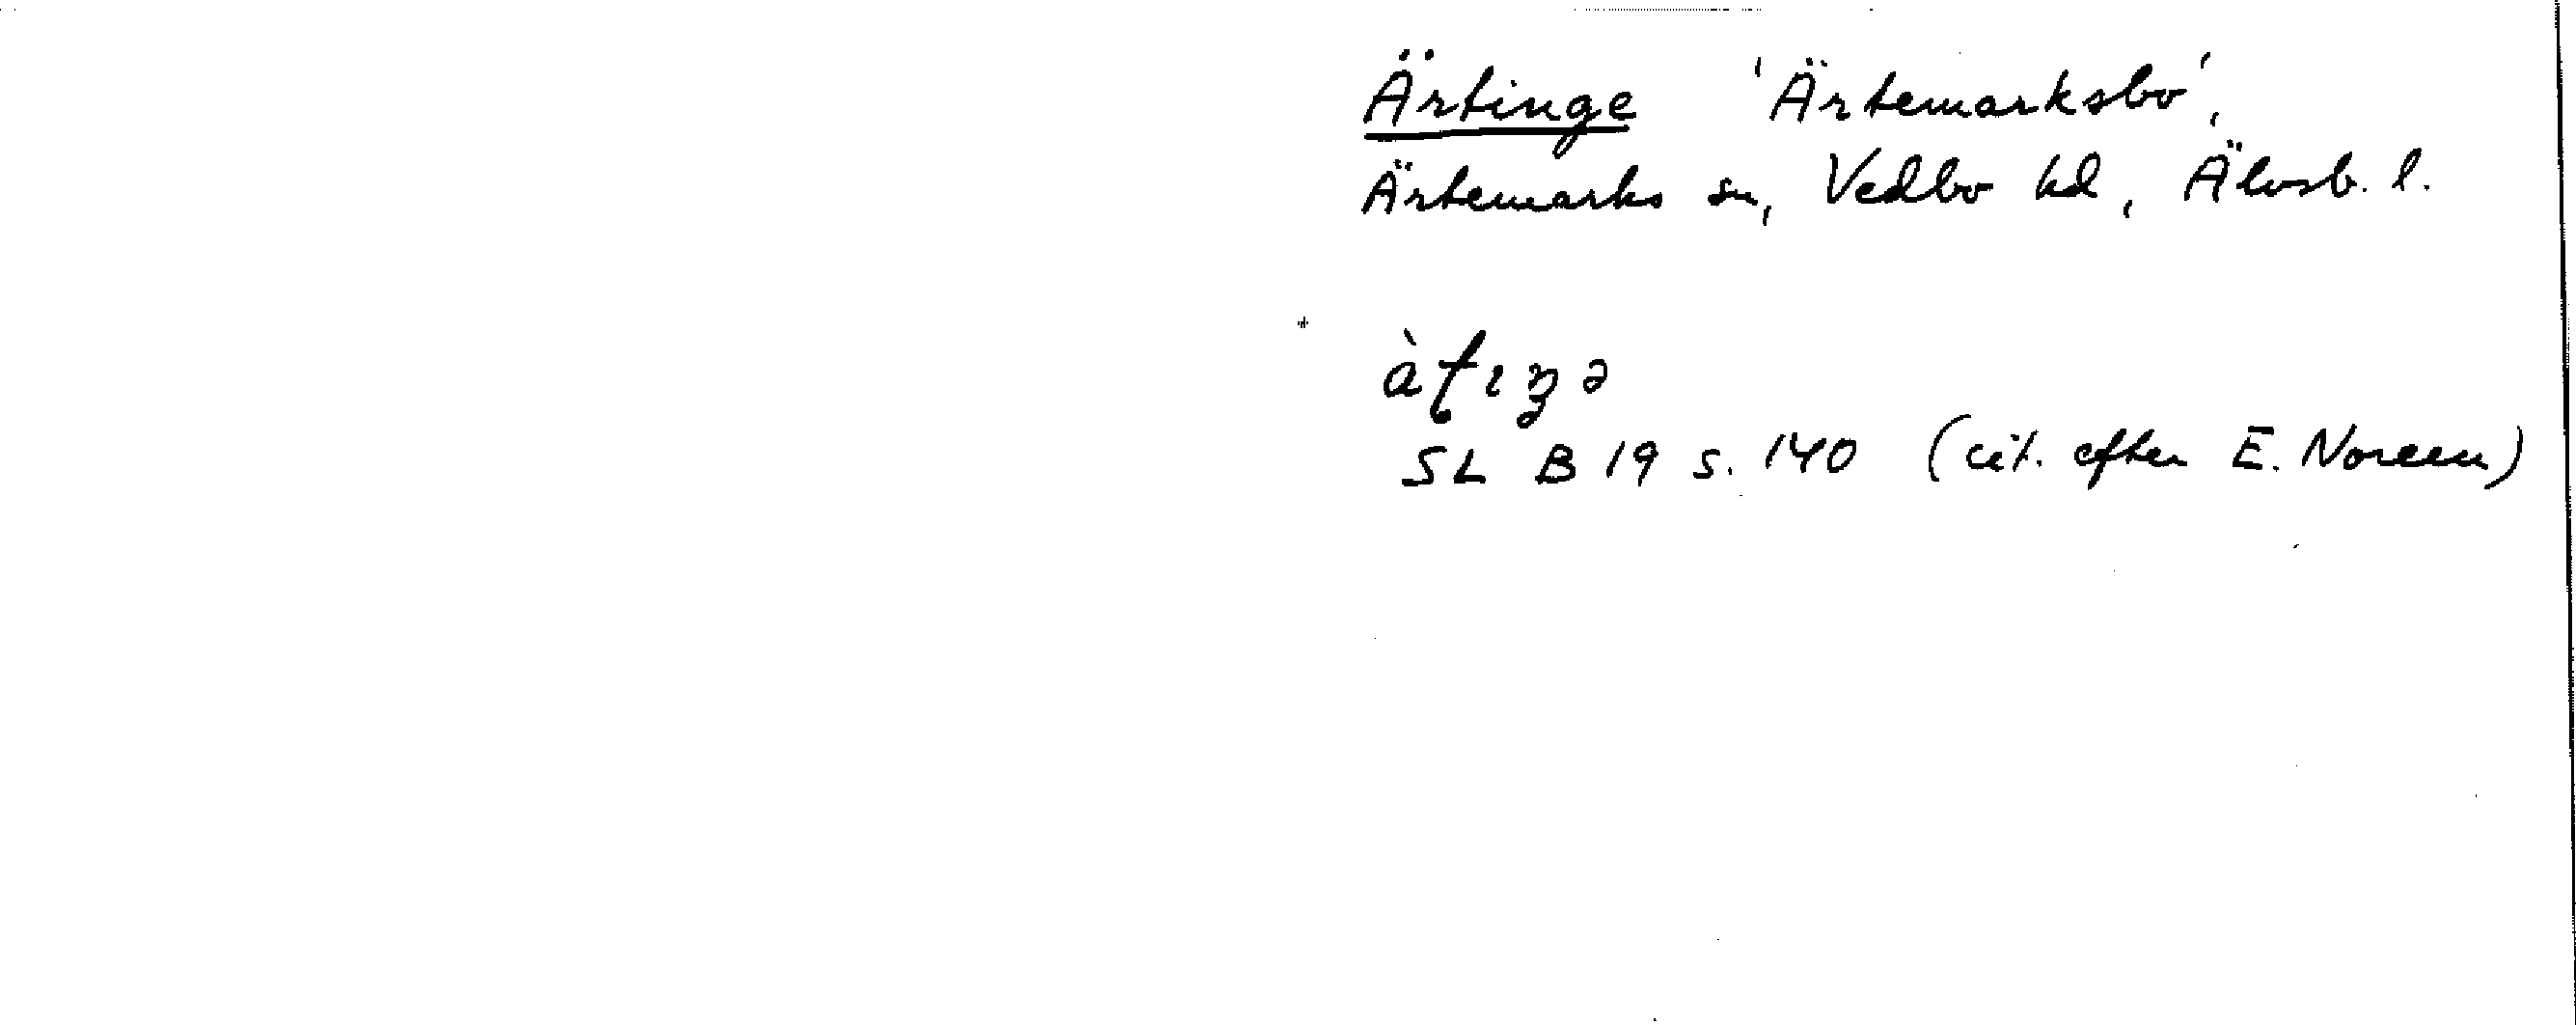 Ärtinge 'Ärtemarksbo',
Ärtemarks sn, Vedbo hd, Älvsb. l.
àʈɪŋə
SL B 19 s. 140 (cit. efter E. Noreen)